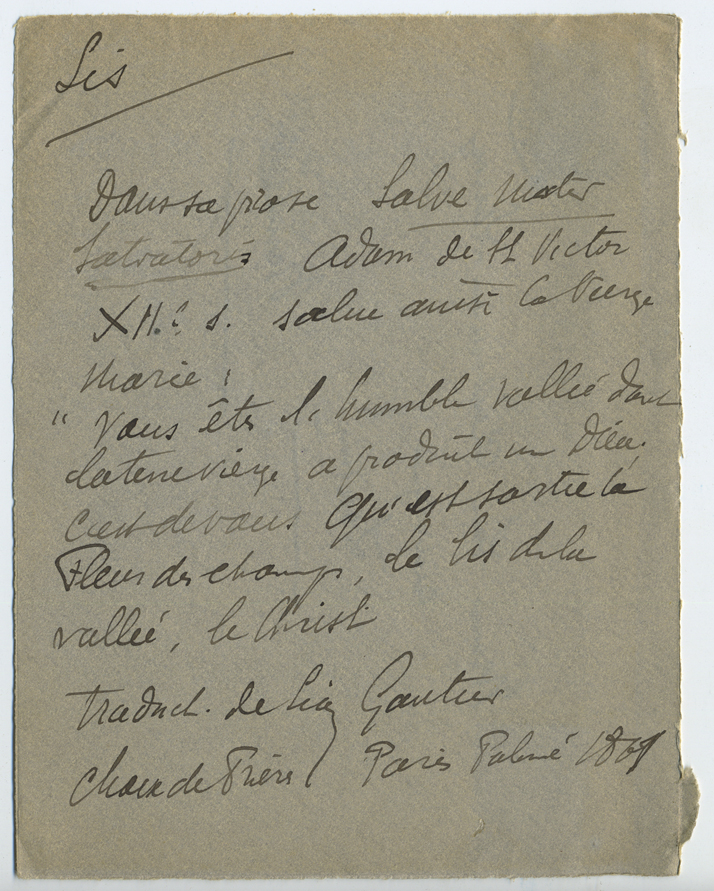 Lis
Dans sa prose Salve Mater
Salvatoris Adam de St Victor
XII.e s. salue ainsi la Vierge
Marie :
" Vous êtes l'humble vallée dont
la terre vierge a produit un Dieu.
C'est de vous qu'est sortie la
Fleur des champs, le lis de la
vallée, le Christ
traduct. de Léon Gautier
Choix de Prières Paris Palmé